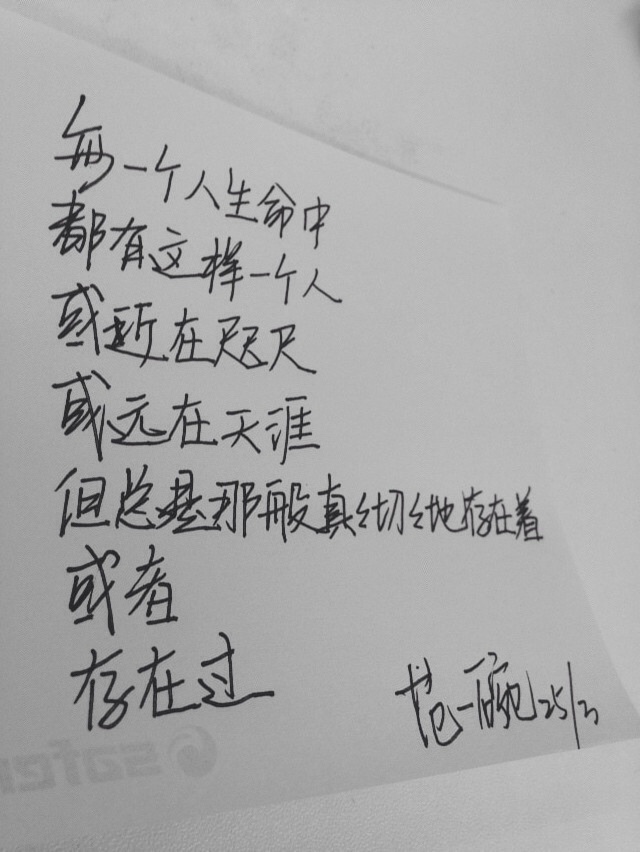 每一个人生命中
都有这样一个人
或近在咫尺
或远在天涯
但总是那般真真切切地存在着
或者
存在过
范一 25/2